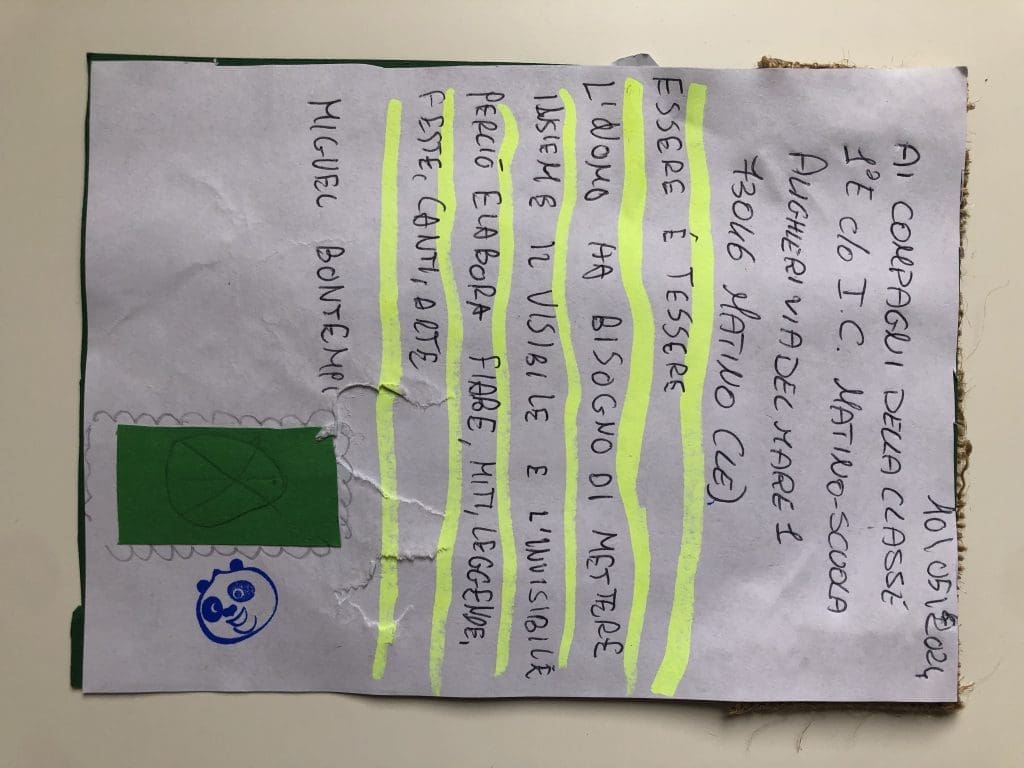 10/05/2024
AI COMPAGNI DELLA CLASSE
1°E c/o I.C. MATINO-SCUOLA
ALIGHIERI VIA DEL MARE 1
73046 MATINO (LE)
ESSERE É TESSERE
L'UOMO HA BISOGNO DI METTERE
INSIEME IL VISIBILE E L'INVISIBILE
PERCIÓ ELABORA FIABE, MITI, LEGGENDE,
FESTE, CANTI, ARTE
MIGUEL BONTEMPI